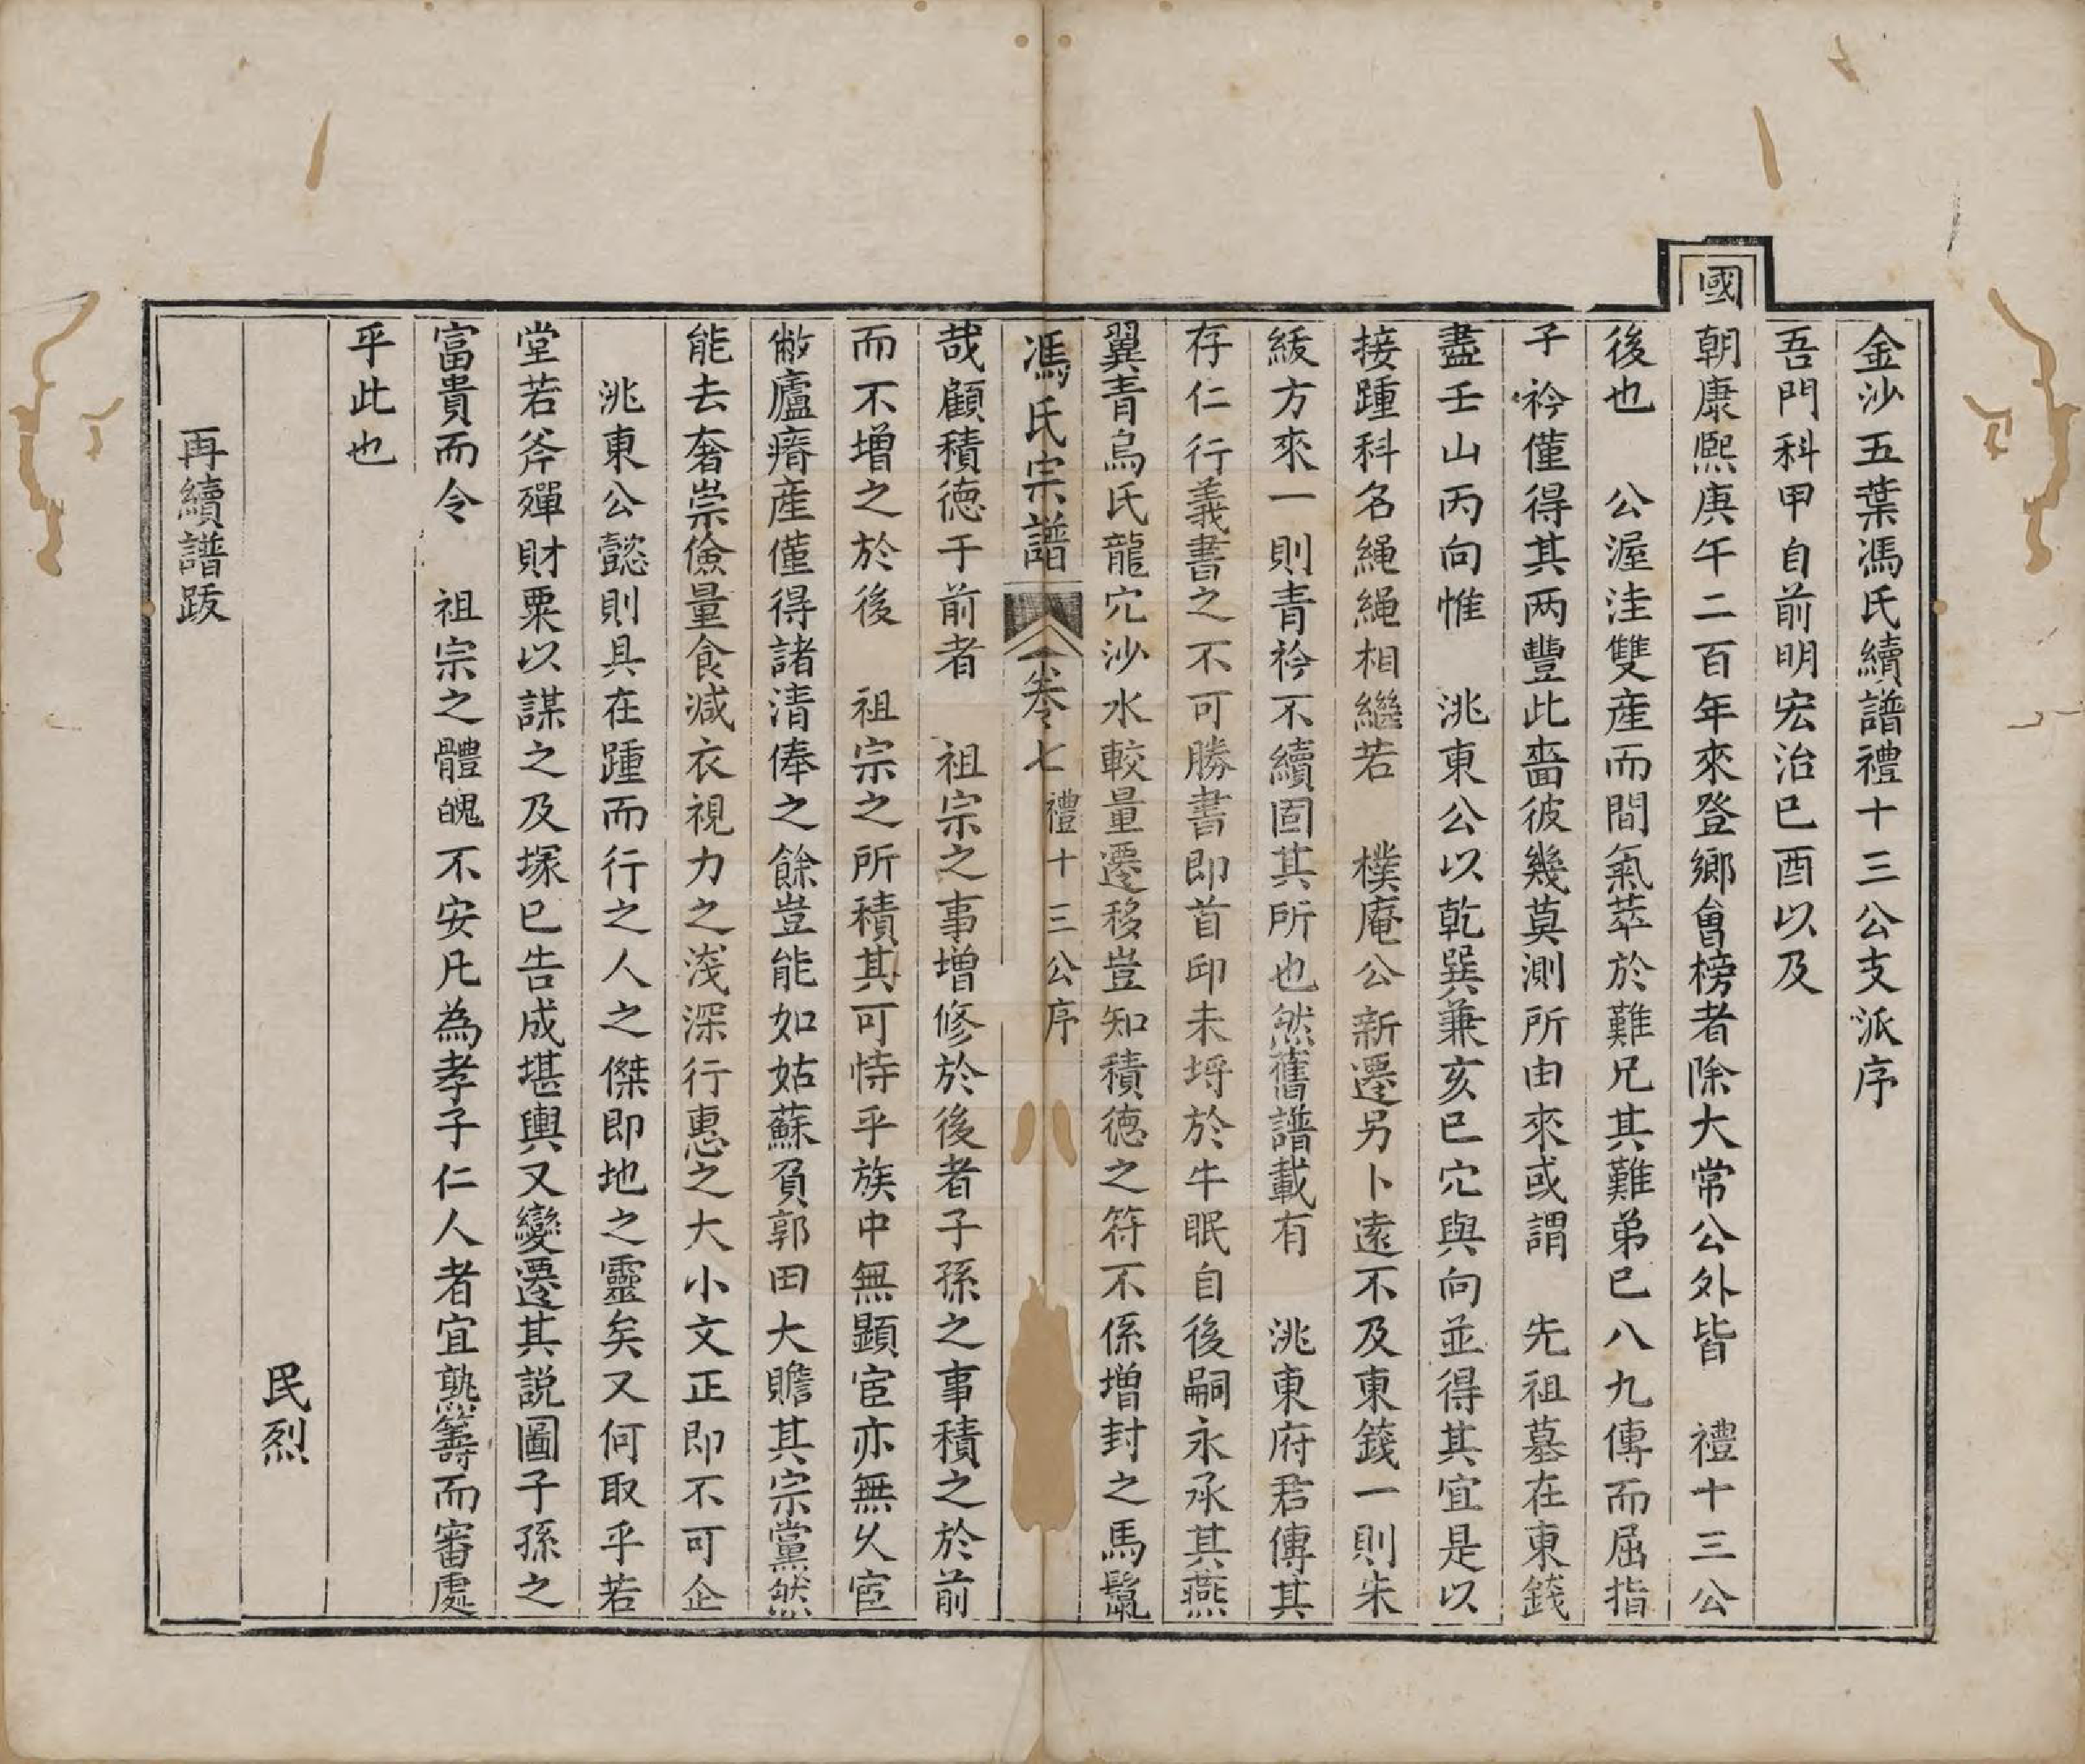 金沙五葉馮氏續譜禮十三公支派序
吾門科甲自前明宏治已酉以及
國朝康熙庚午二百年來登鄉會榜者除大常公外皆　禮十三公
後也　公渥洼雙産而間氣萃於難兄其難弟已八九傳而屈指
子衿僅得其两豐此嗇彼幾莫測所由來或謂　先祖墓在東錢
盡壬山丙向惟　洮東公以乾巽兼亥巳穴與向並得其宜是以
接踵科名繩繩相繼若　樸庵公新遷另卜遠不及東錢一則朱
紱方來一則青衿不續固其所也然舊譜載有　洮東府君傳其
存仁行義書之不可勝書即首邱未埒於牛眠自後嗣永承其燕
翼青烏氏龍穴沙水較量遷移豈知積德之符不係增封之馬鬛
馮氏宗譜　卷七　禮十三公序
哉顧積德于前者　祖宗之事增修於後者子孫之事積之於前
而不增之於後　祖宗之所積其可恃乎族中無顕宦亦無久宦
敝廬瘠産僅得諸清俸之餘豈能如姑蘇負郭田大贍其宗黨然
能去奢崇儉量食减衣視力之浅深行惠之大小文正即不可企
洮東公懿則具在踵而行之人之傑即地之靈矣又何取乎若
堂若斧殫財粟以謀之及塚已告成堪輿又變遷其説圖子孫之
富貴而令　祖宗之體魄不安凡為孝子仁人者宜熟籌而審處
乎此也
民烈
再續譜跋